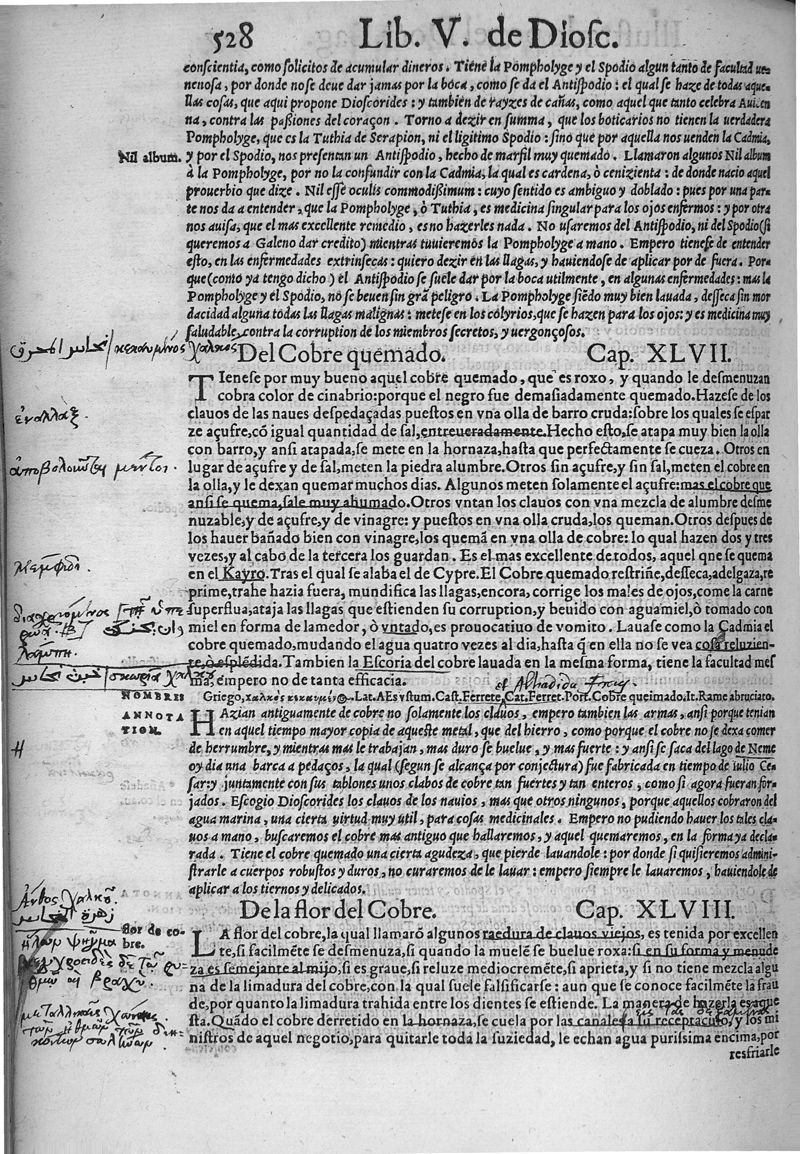 528 Lib. V. de Diosc.
conscientia, como solicitos de acumular dineros. Tiene la Pompholyge y el Spodio algun tanto de facultad ue-
nenosa, por donde no se deue dar jamas por la boca, como se da el Antispodio: el qual se haze de todas aque-
llas cosas, que aqui propone Dioscorides: y tambien de rayzes de cañas, como aquel que tanto celebra Auicen
na, contra las passiones del coraçon. Torno a dezir en summa, que los boticarios no tienen la uerdadera
Pompholyge, que es la Tuthia de Serapion, ni el ligitimo Spodio: sino que por aquella nos uenden la Cadmia,
Nil album. y por el Spodio, nos presentan un Antispodio, hecho de marfil muy quemado. Llamaron algunos Nil album
à la Pompholyge, por no la confundir con la Cadmia, la qual es cardena, ò cenizienta: de donde nacio aquel
prouerbio que dize. Nil esse oculis commodissimum: cuyo sentido es ambiguo y doblado: pues por una par-
te nos da a entender, que la Pompholyge, ò Tuthia, es medicina singular para los ojos enfermos: y por otra
nos auisa, que el mas excellente remedio, es no hazerles nada. No usaremos del Antispodio, ni del Spodio (si
queremos a Galeno dar credito) mientras tuuieremos la Pompholyge a mano. Empero tienese de entender
esto, en las enfermedades extrinsecas: quiero dezir en las llagas, y hauiendose de aplicar por de fuera. Por-
que (como ya tengo dicho) el Antispodio se suele dar por la boca utilmente, en algunas enfermedades: mas la
Pompholyge y el Spodio, no se beuen sin grã peligro. La Pompholyge siẽdo muy bien lauada, desseca sin mor
dacidad alguna todas las llagas malignas: metese en los colyrios, que se hazen para los ojos: y es medicina muy
saludable, contra la corruption de los miembros secretos, y uergonçosos.
Del Cobre quemado. Cap. XLVII.
TIenese por muy bueno aquel cobre quemado, que es roxo, y quando le desmenuzan
cobra color de cinabrio: porque el negro fue demasiadamente quemado. Hazese de los
ἐναλλὰξ. clauos de las naues despedaçadas puestos en vna olla de barro cruda: sobre los quales se espar
ze açufre, cõ igual quantidad de sal, entreueradamente. Hecho esto, se atapa muy bien la olla
con barro, y ansi atapada, se mete en la hornaza, hasta que perfectamente se cueza. Otros en
lugar de açufre y de sal, meten la piedra alumbre. Otros sin açufre, y sin sal, meten el cobre en
la olla, y le dexan quemar muchos dias. Algunos meten solamente el açufre: mas el cobre que
ansi se quema, sale muy ahumado. Otros vntan los clauos con vna mezcla de alumbre desme
nuzable, y de açufre, y de vinagre: y puestos en vna olla cruda, los queman. Otros despues de
los hauer bañado bien con vinagre, los quemã en vna olla de cobre: lo qual hazen dos y tres
vezes, y al cabo de la tercera los guardan. Es el mas excellente de todos, aquel qne se quema
en el Kayro. Tras el qual se alaba el de Cypre. El Cobre quemado restriñe, desseca, adelgaza, re
prime, trahe hazia fuera, mundifica las llagas, encora, corrige los males de ojos, come la carne
superflua, ataja las llagas que estienden su corruption, y beuido con aguamiel, ò tomado con
miel en forma de lamedor, ò vntado, es prouocatiuo de vomito. Lauase como la Cadmia el
cobre quemado, mudando el agua quatro vezes al dia, hasta q̃ en ella no se vea cosa reluzien-
te, ò esplẽdida. Tambien la Escoria del cobre lauada en la mesma forma, tiene la facultad mes
ma, empero no de tanta efficacia.
NOMBRES Griego, χαλκὸς κεκαυμένος. Lat. AEs vstum. Cast. Ferrete. Cat. Ferret. Port. Cobre queimado. It. Rame abruciato.
ANNOTA HAzian antiguamente de cobre no solamente los clauos, empero tambien las armas, ansi porque tenian
TION. en aquel tiempo mayor copia de aqueste metal, que del hierro, como porque el cobre no se dexa comer
de herrumbre, y mientras mas le trabajan, mas duro se buelue, y mas fuerte: y ansi se saca del lago de Neme
oy dia una barca a pedaços, la qual (segun se alcança por conjectura) fue fabricada en tiempo de iulio Ce-
sar: y juntamente con sus tablones unos clabos de cobre tan fuertes y tan enteros, como si agora fueran for-
jados. Escogio Dioscorides los clauos de los nauios, mas que otros ningunos, porque aquellos cobraron del
agua marina, una cierta uirtud muy útil, para cosas medicinales. Empero no pudiendo hauer los tales cla-
uos a mano, buscaremos el cobre mas antiguo que hallaremos, y aquel quemaremos, en la forma ya decla-
rada. Tiene el cobre quemado una cierta agudeza, que pierde lauandole: por donde si quisieremos admini-
strarle a cuerpos robustos y duros, no curaremos de le lauar: empero siempre le lauaremos, hauiendole de
aplicar a los tiernos y delicados.
De la flor del Cobre. Cap. XLVIII.
flor de co- LA flor del cobre, la qual llamarõ algunos raedura de clauos viejos, es tenida por excellen
bre. te, si facilmẽte se desmenuza, si quando la muelẽ se buelue roxa: si en su forma y menude
za es semejante al mijo, si es graue, si reluze mediocremẽte, si aprieta, y si no tiene mezcla algu
na de la limadura del cobre, con la qual suele falsificarse: aun que se conoce facilmẽte la frau
de, por quanto la limadura trahida entre los dientes se estiende. La manera de hazerla es aque
sta. Quãdo el cobre derretido en la hornaza, se cuela por las canales a su receptaculo, y los mi
nistros de aquel negotio, para quitarle toda la suziedad, le echan agua purissima encima, por
resfriarle